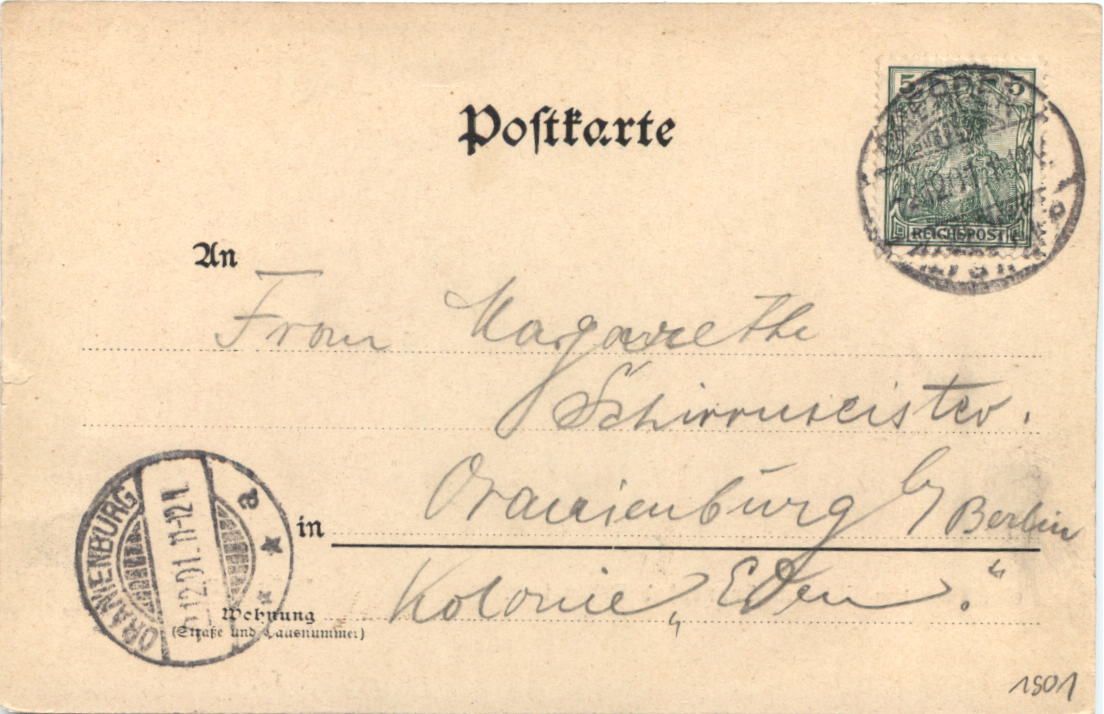 Postkarte
5 5
REICHSPOST
An
Frau Margarethe
Schirrmeister.
in Oranienburg b/ Berlin
Kolonie „Eden".
Wohnung
(Straße und Hausnummer)
ORANIENBURG
12.01. 11-12 N.
a
1901